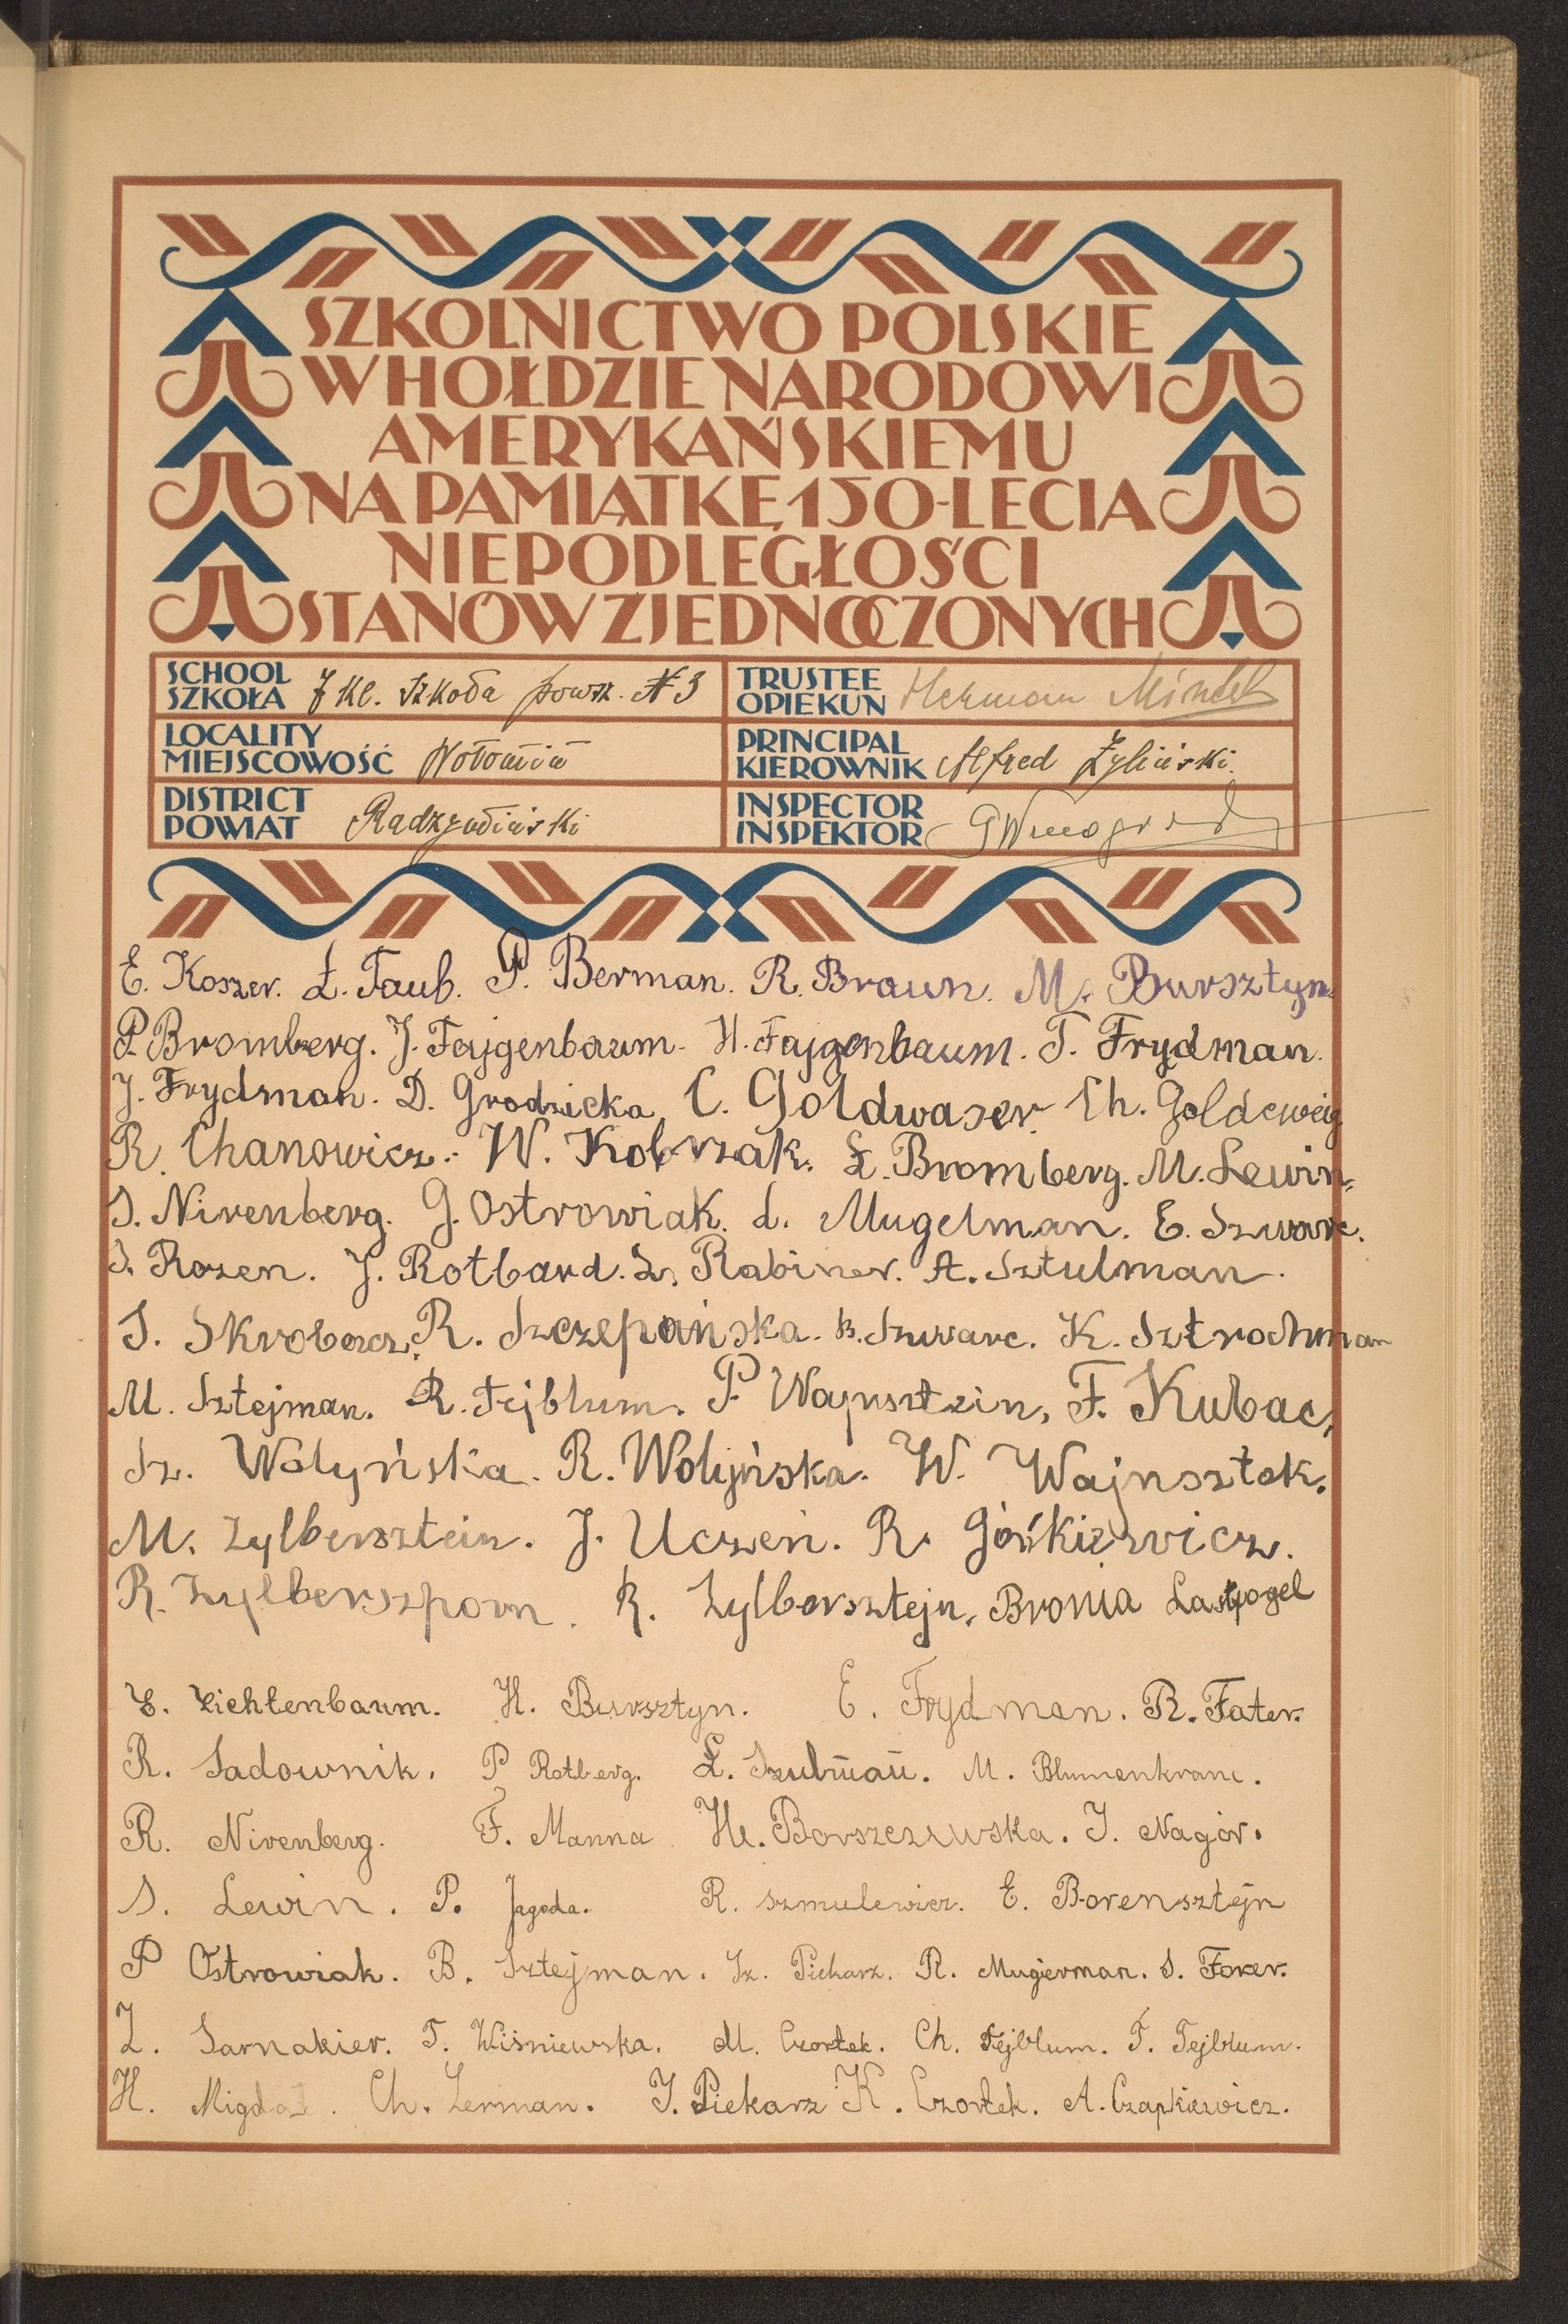 SZKOLNICTWO POLSKIE
W HOŁDZIE NARODOWI
AMERYKAŃSKIEMU
NA PAMIĄTKĘ 150-LECIA
NIEPODLEGŁOŚCI
STANÓW ZJEDNOCZONYCH
SCHOOL SZKOŁA 7 kl. Szkoła powsz. N 3
TRUSTEE OPIEKUN Herman
LOCALITY MIEJSCOWOŚĆ Wołomin
PRINCIPAL KIEROWNIK Alfred Żyliński.
DISTRICT POWIAT Radzymiński
INSPECTOR INSPEKTOR
E. Koszer. Ł. Taub. P. Berman. R. Braun. M. Bursztyn
P. Bromberg. J. Fajgenbaum. H. Fajgenbaum. T. Frydman.
J. Frydman. D. Grodzicka, C. Goldwaser. Ch.
R. Chanowicz. W. Kobrzak. Ł. Bromberg. M. Lewin.
S. Nirenberg. G. Ostrowiak. L. Mugelman. E. Szwarc.
S. Rozen. J. Rotbard. Ł. Rabiner. A. Sztulman.
S. Skrobacz, R. Szczepańska. B. Szwarc. K. Sztrochman
M. Sztejman. R. Fejblum. P. Wajnsztein, F. Kubac,
Sz. Wołyńska. R. Wołyńska. W. Wajnsztok.
M. Zylbersztein. J. Uczeń. R. Górkiewicz.
R. Zylberszporn. R. Zylbersztejn, Bronia Lastfogel
E. Lichtenbaum. H. Bursztyn. E. Frydman. R. Fater.
R. Sadownik. P Rotberg. Ł. Szulman. M. Blumenkranc.
R. Nirenberg. F. Manna H. Borszczewska. J. Nagór.
S. Lewin. P. Jagoda. R. Szmulewicz. E. Borensztejn
P Ostrowiak. B. Sztejman. Sz. Piekarz. R. Mugierman. S. Forer.
Z. Sarnakier. T. Wiśniewska. M. Czortek. Ch. Fejblum. F. Fejblum.
H. Migdał. Ch. Lerman. J. Piekarz K. Czortek. A. Czapkiewicz.